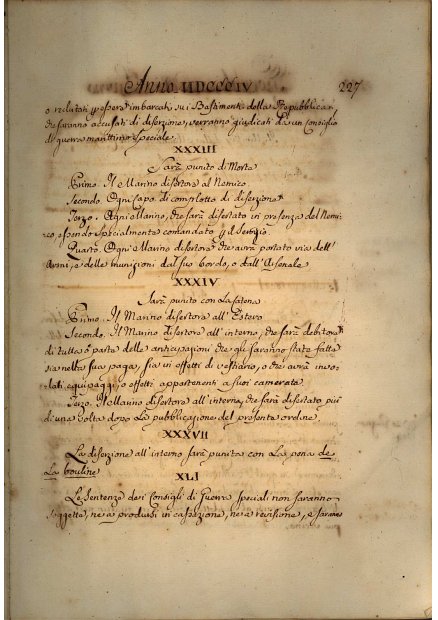 Anno MDCCCIV 227
o reclutati p essere imbarcati sui Bastimenti della Repubblica
che saranno accusati di diserzione, verranno giudicati da un Consiglio
di guerra marittimo speciale.
XXXIII
Sarà punito di Morte
Primo. Il Marino disertore al Nemico
Secondo. Ogni Capo di complotto di diserzione
Terzo. Ogni Marino, che sarà disertato in presenza del Nemi-
co, essendo specialmente comandato p il Servizio
Quarto. Ogni Marino disertore che avrà portato via dell'
Armi, e delle munizioni dal suo bordo, o dall'Arsenale
XXXIV
Sarà punito con la Catena
Primo. Il Marino disertore all'Estero
Secondo. Il Marino disertore all'interno, che sarà debitore
di tutta o parte delle anticipazioni che gli saranno state fatte
sia nella sua paga, sia in effetti di vestiario, o che avrà invo-
lati equipaggi, o effetti appartenenti a suoi camerata.
Terzo. Il Marino disertore all'interno, che sarà disertato più
di una volta dopo la pubblicazione del presente ordine.
XXXVII
La diserzione all'interno sarà punita con la pena de
la bouline
XLI
Le Sentenze dei Consigli di Guerra speciali non saranno
soggette, nè a prodursi in cassazione, nè a revisione, e saranno